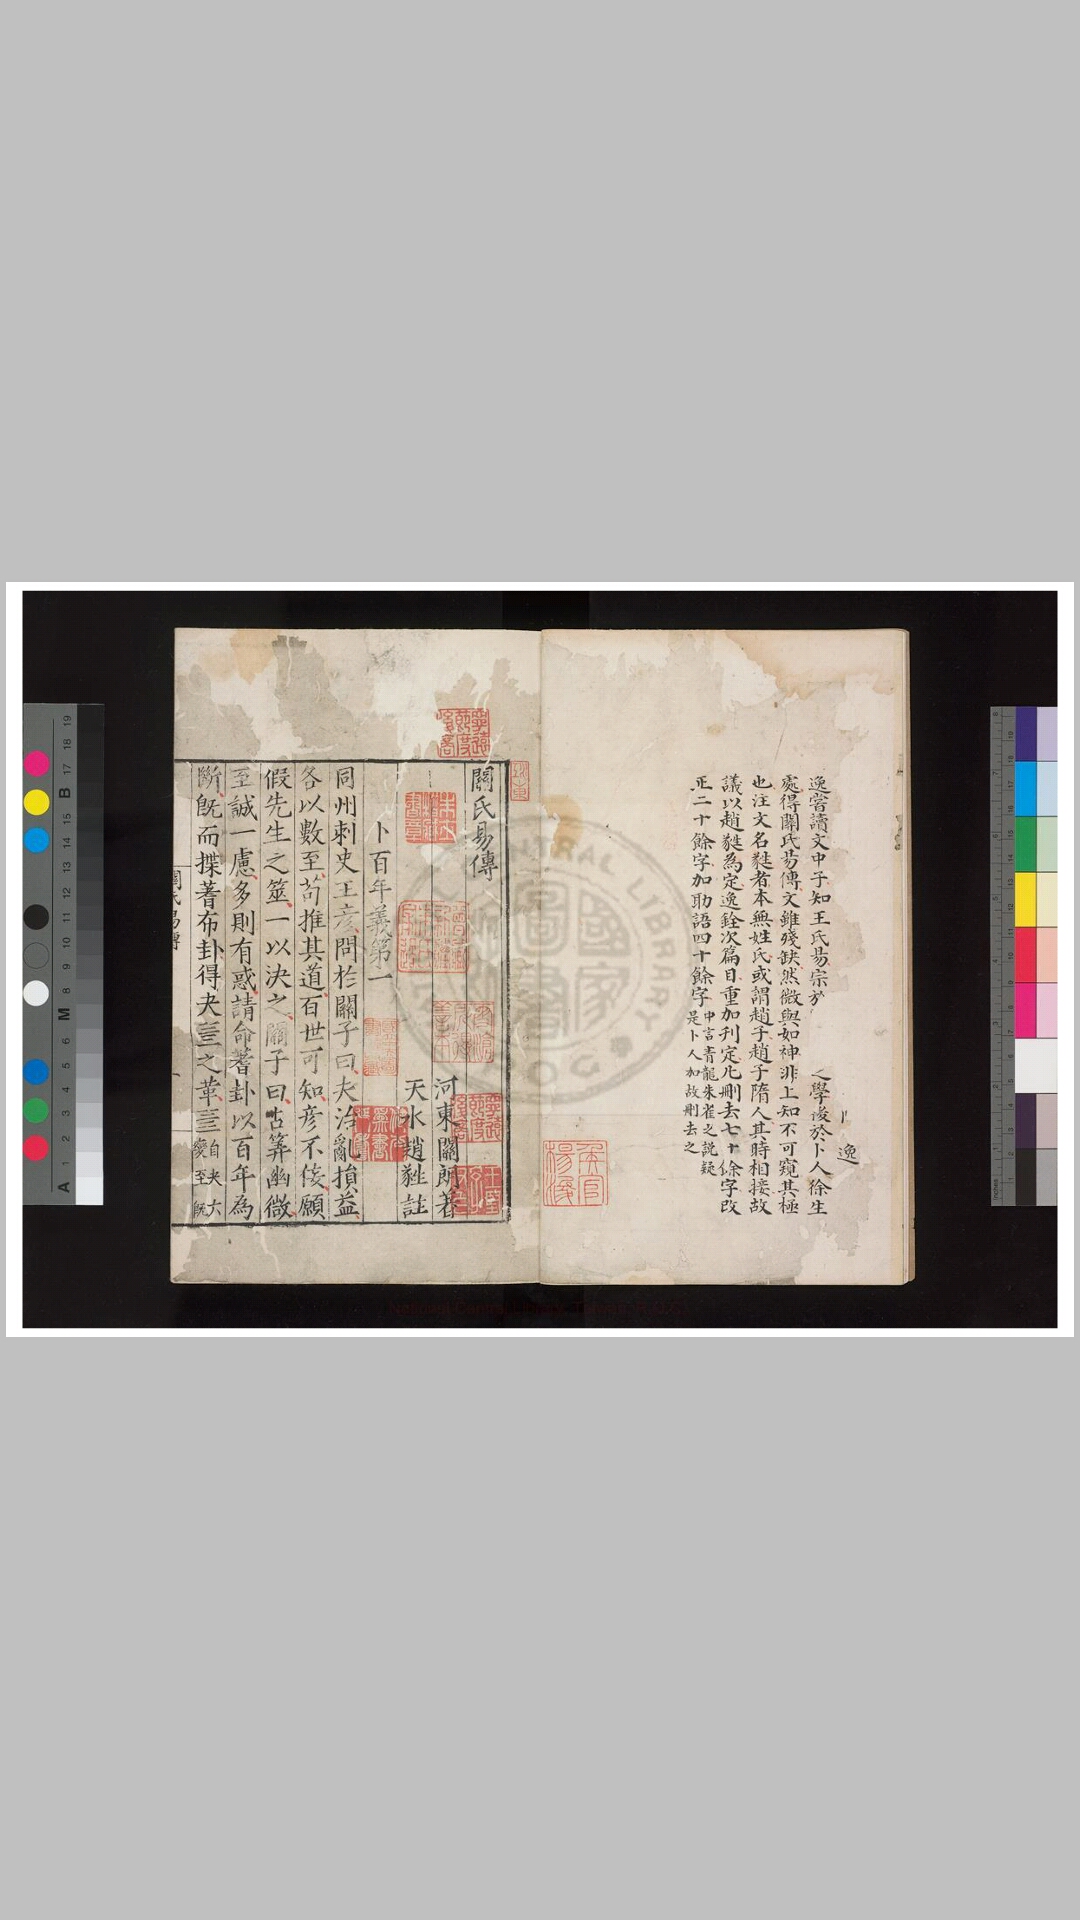 逸
逸嘗讀文中子知王氏昜宗於
之學後於卜人徐生
處得關氏昜傳文雖殘缺然微與如神非上知不可窺其極
也注文名蕤者本無姓氏或謂趙子趙子隋人其時相接故
議以趙蕤為定逸銓次篇目重加刊定凡刪去七十餘字改
正二十餘字加助語四十餘字
中言青龍朱雀之說疑
是卜人加故刪去之
關氏昜傳
河東關朗著
天水趙蕤註
卜百年義第一
同州刺史王彥問於關子曰夫治亂損益
各以數至苟推其道百世可知彥不佞願
假先生之筮一以決之關子曰占筭幽微
至誠一慮多則有惑請命蓍卦以百年為
斷既而揲蓍布卦得夬之革
自夬六
變至
關氏昜傳
侯官楊浚